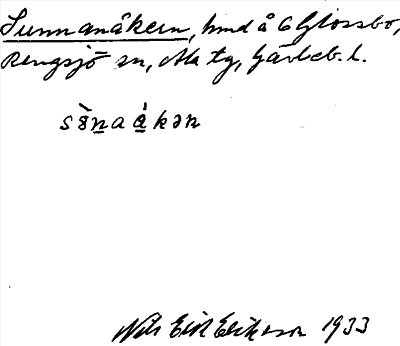 Sunnanåkern, hmd å 6 Glössbo,
Rengsjö sn, Ala tg, Gävleb. l.
sɵ̀naákən
Nils Erik Eriksson 1933